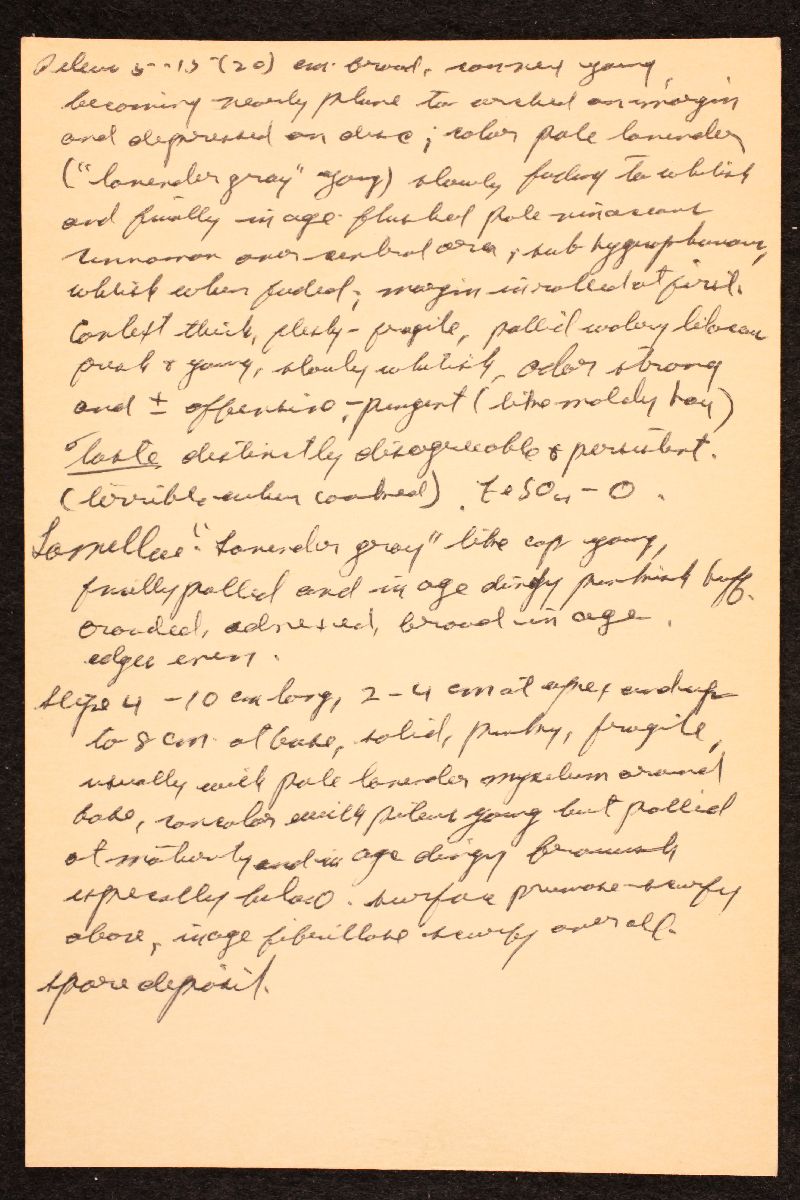 Pileus 5-15-(20) cm broad, convex young,
becoming nearly plane to arched on margin
and depressed on disc; color pale lavender
("lavender gray" young) slowly fading to whitish
and finally in age flushed pale vinaceous
cinnamon over central area, subhygrophanous,
whitish when faded; margin inrolled at first.
Context thick, fleshy-fragile, pallid watery lilaceous
fresh & young, slowly whitish, odor strong
and ± offensive,-pungent (like moldy hay)
Taste distinctly disagreeable & persistent.
(terrible when cooked). FeSO4 - O.
Lamellae "Lavender gray" like cap young,
finally pallid and in age dingy pinkish buff.
crowded, adnexed, broad in age.
edges even.
stipe 4-10 cm long, 2-4 cm at apex and up
to 8 cm at base, solid, fragile,
usually with pale lavender mycelium around
base, concolor with pileus young but pallid
at maturity and in age dingy brownish
especially below. surface pruinose-scurfy
above, in age fibrillose scurfy over all.
spore deposit.